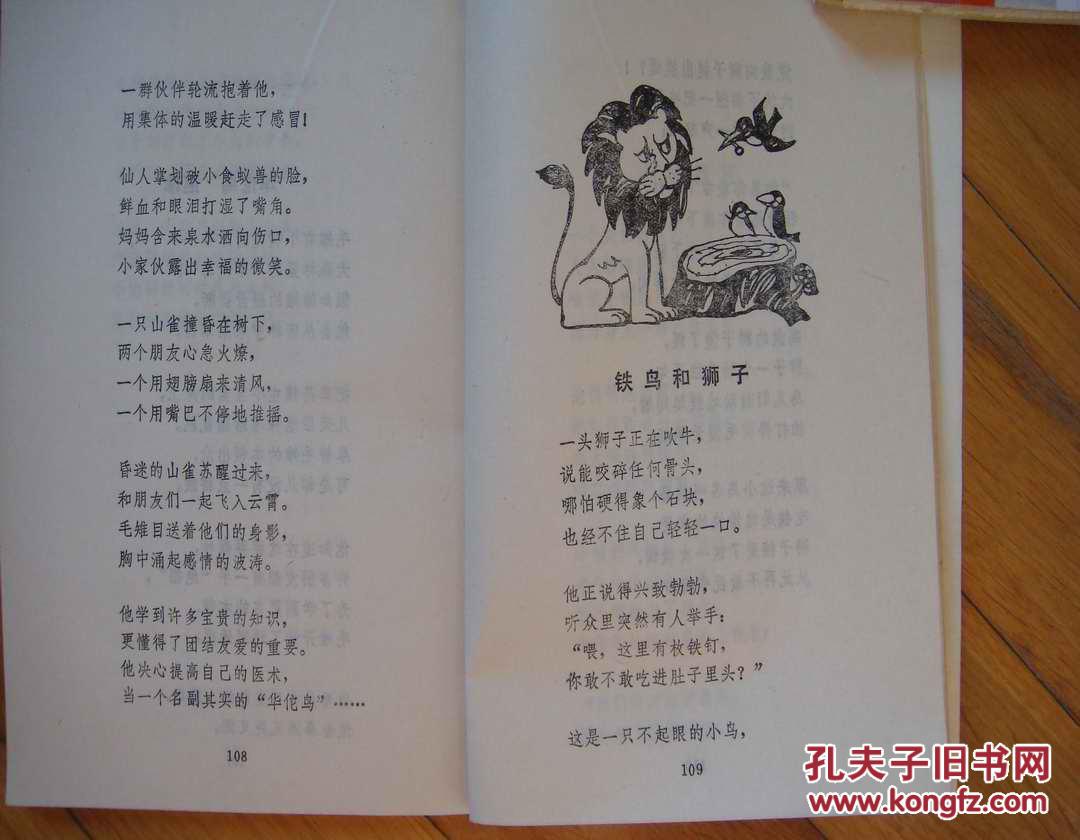 一群伙伴轮流抱着他，
用集体的温暖赶走了感冒！
仙人掌划破小食蚁兽的脸，
鲜血和眼泪打湿了嘴角。
妈妈含来泉水洒向伤口，
小家伙露出幸福的微笑。
一只山雀撞昏在树下，
两个朋友心急火燎，
一个用翅膀扇来清风，
一个用嘴巴不停地推摇。
昏迷的山雀苏醒过来，
和朋友们一起飞入云霄。
毛雉目送着他们的身影，
胸中涌起感情的波涛。
他学到许多宝贵的知识，
更懂得了团结友爱的重要。
他决心提高自己的医术，
当一个名副其实的“华佗鸟”……
108
铁鸟和狮子
一头狮子正在吹牛，
说能咬碎任何骨头，
哪怕硬得象个石块，
也经不住自己轻轻一口。
他正说得兴致勃勃，
听众里突然有人举手：
“喂，这里有枚铁钉，
你敢不敢吃进肚子里头？”
这是一只不起眼的小鸟，
109
孔夫子旧书网
www.kongfz.com